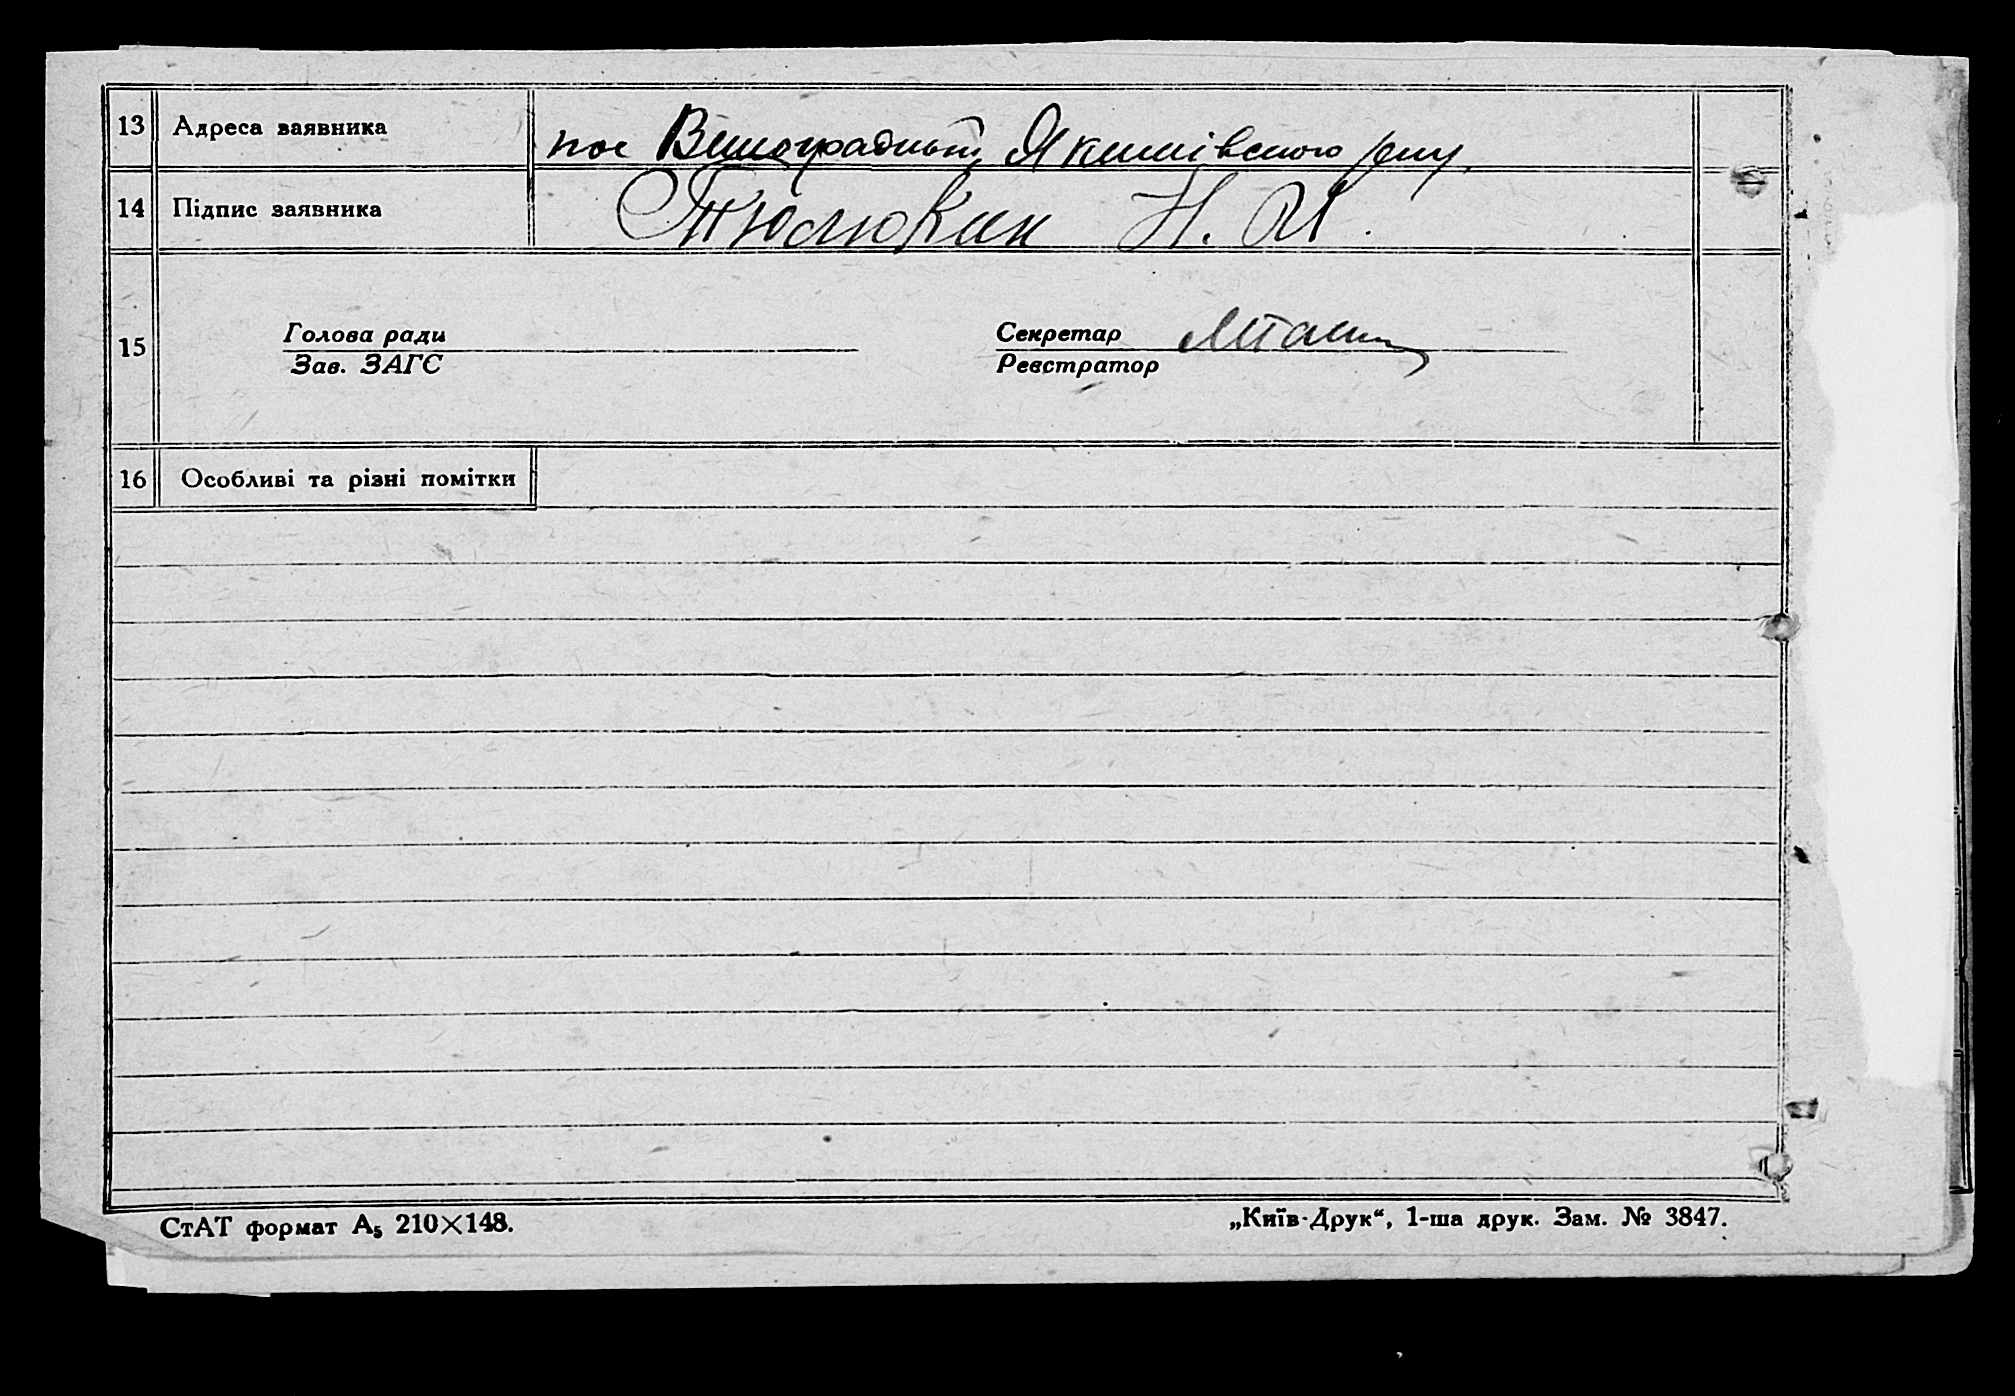 13 Адреса заявника пос Виноградний Якимівського р-ну
14 Підпис заявника Тюлюкин Н. И.
15 Голова ради Секретар
Зав. ЗАГС Реєстратор
16 Особливі та різні помітки
СтАТ формат А₅ 210×148. „Київ-Друк“, 1-ша друк. Зам. № 3847.